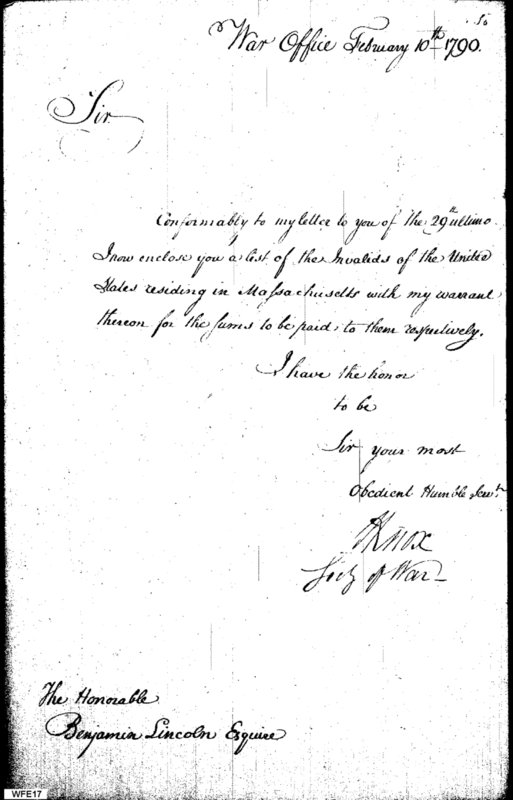 50
War Office February 10th 1790.
Sir
Conformably to my letter to you of the 29th ultimo
I now enclose you a list of the Invalids of the United
States residing in Massachusetts with my warrant
thereon for the sums to be paid to them respectively.
I have the honor
to be
Sir your most
Obedient Humble Servt.
HKnox
Secy of War
The Honorable
Benjamin Lincoln Esquire
WFE17